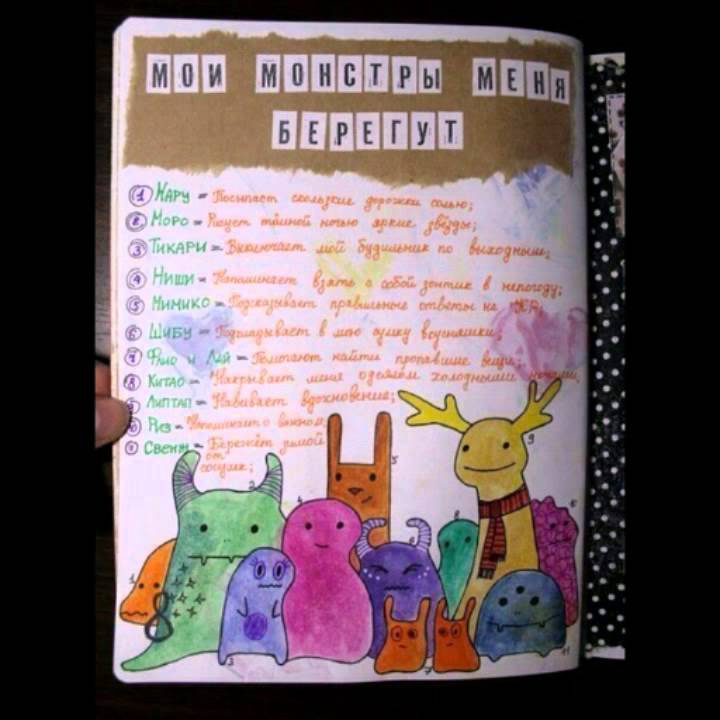 МОИ МОНСТРЫ МЕНЯ
БЕРЕГУТ
1 КАРУ - Посыпает скользкие дорожки солью;
2 МОРО - Рисует тёмной ночью яркие звёзды;
3 ТИКАРИ - Выключает мой будильник по выходным;
4 НИШИ - Напоминает взять с собой зонтик в непогоду;
5 МИМИКО - Подсказывает правильные ответы на
6 ШИБУ - Подкладывает в мою сумку вкусняшки;
7 ФЛИО и ЛЕЙ - Помогают найти пропавшие вещи;
8 КИТАО - Накрывает меня одеялом холодными ночами;
9 ЛИПТАП - Навивает вдохновение;
10 РИЗ - Напоминает о важном;
11 СВЕНЖ - Бережёт зимой
от
сосулек;
2
5
9
4
8
6
1
3
7
11